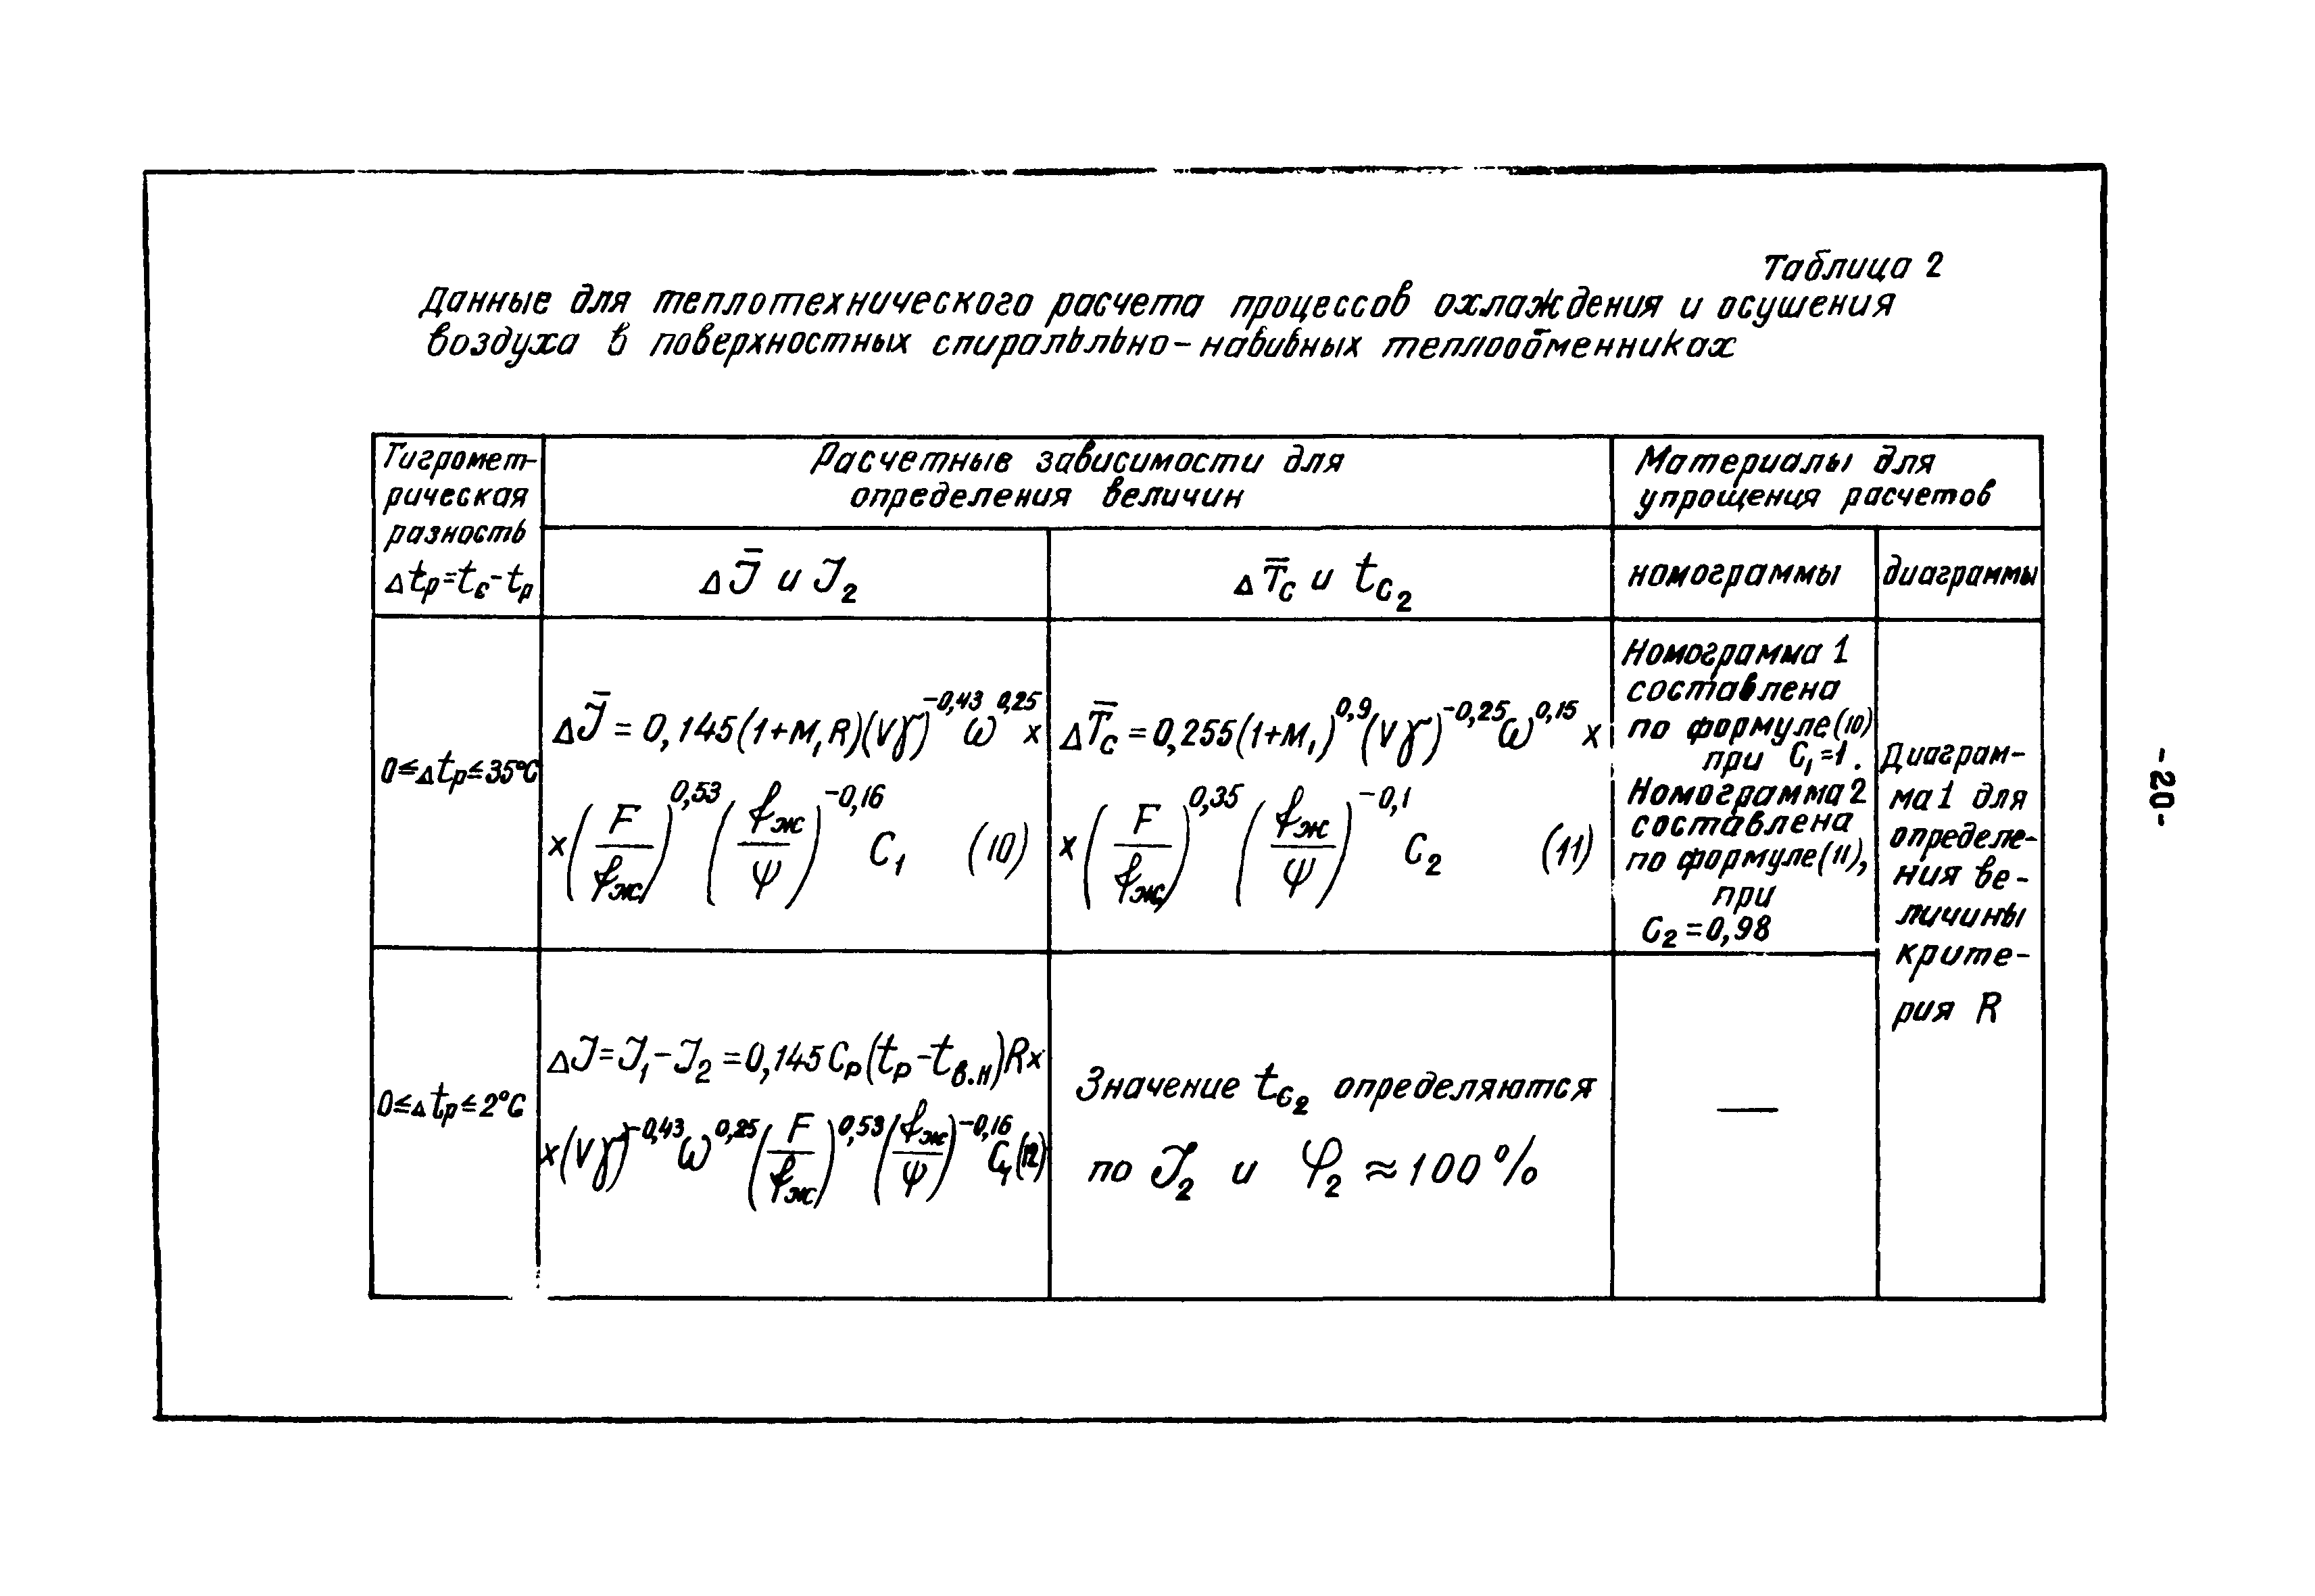 Таблица 2
Данные для теплотехнического расчета процессов охлаждения и осушения
воздуха в поверхностных спиральльно-навивных теплообменниках
Гигромет-
рическая
разность
Δtр=tс-tр
Расчетные зависимости для
определения величин
Материалы для
упрощения расчетов
ΔJ̄ и J₂
ΔT̄с и tс₂
номограммы
диаграммы
0≤Δtр≤35°С
ΔJ̄ = 0,145(1+M₁R)(Vγ)^-0,43 ω^0,25 ×
×(F/fж)^0,53 (fж/ψ)^-0,16 C₁ (10)
ΔT̄с = 0,255(1+M₁)^0,9 (Vγ)^-0,25 ω^0,15 ×
×(F/fж)^0,35 (fж/ψ)^-0,1 C₂ (11)
Номограмма 1
составлена
по формуле(10)
при C₁=1.
Номограмма 2
составлена
по формуле(11),
при
C₂=0,98
Диаграм-
ма 1 для
определе-
ния ве-
личины
крите-
рия R
0≤Δtр≤2°С
ΔJ=J₁-J₂=0,145Cр(tр-tв.н)R×
×(Vγ)^-0,43 ω^0,25 (F/fж)^0,53 (fж/ψ)^-0,16 (12)
Значение tс₂ определяются
по J₂ и φ₂ ≈ 100%
—
-20-